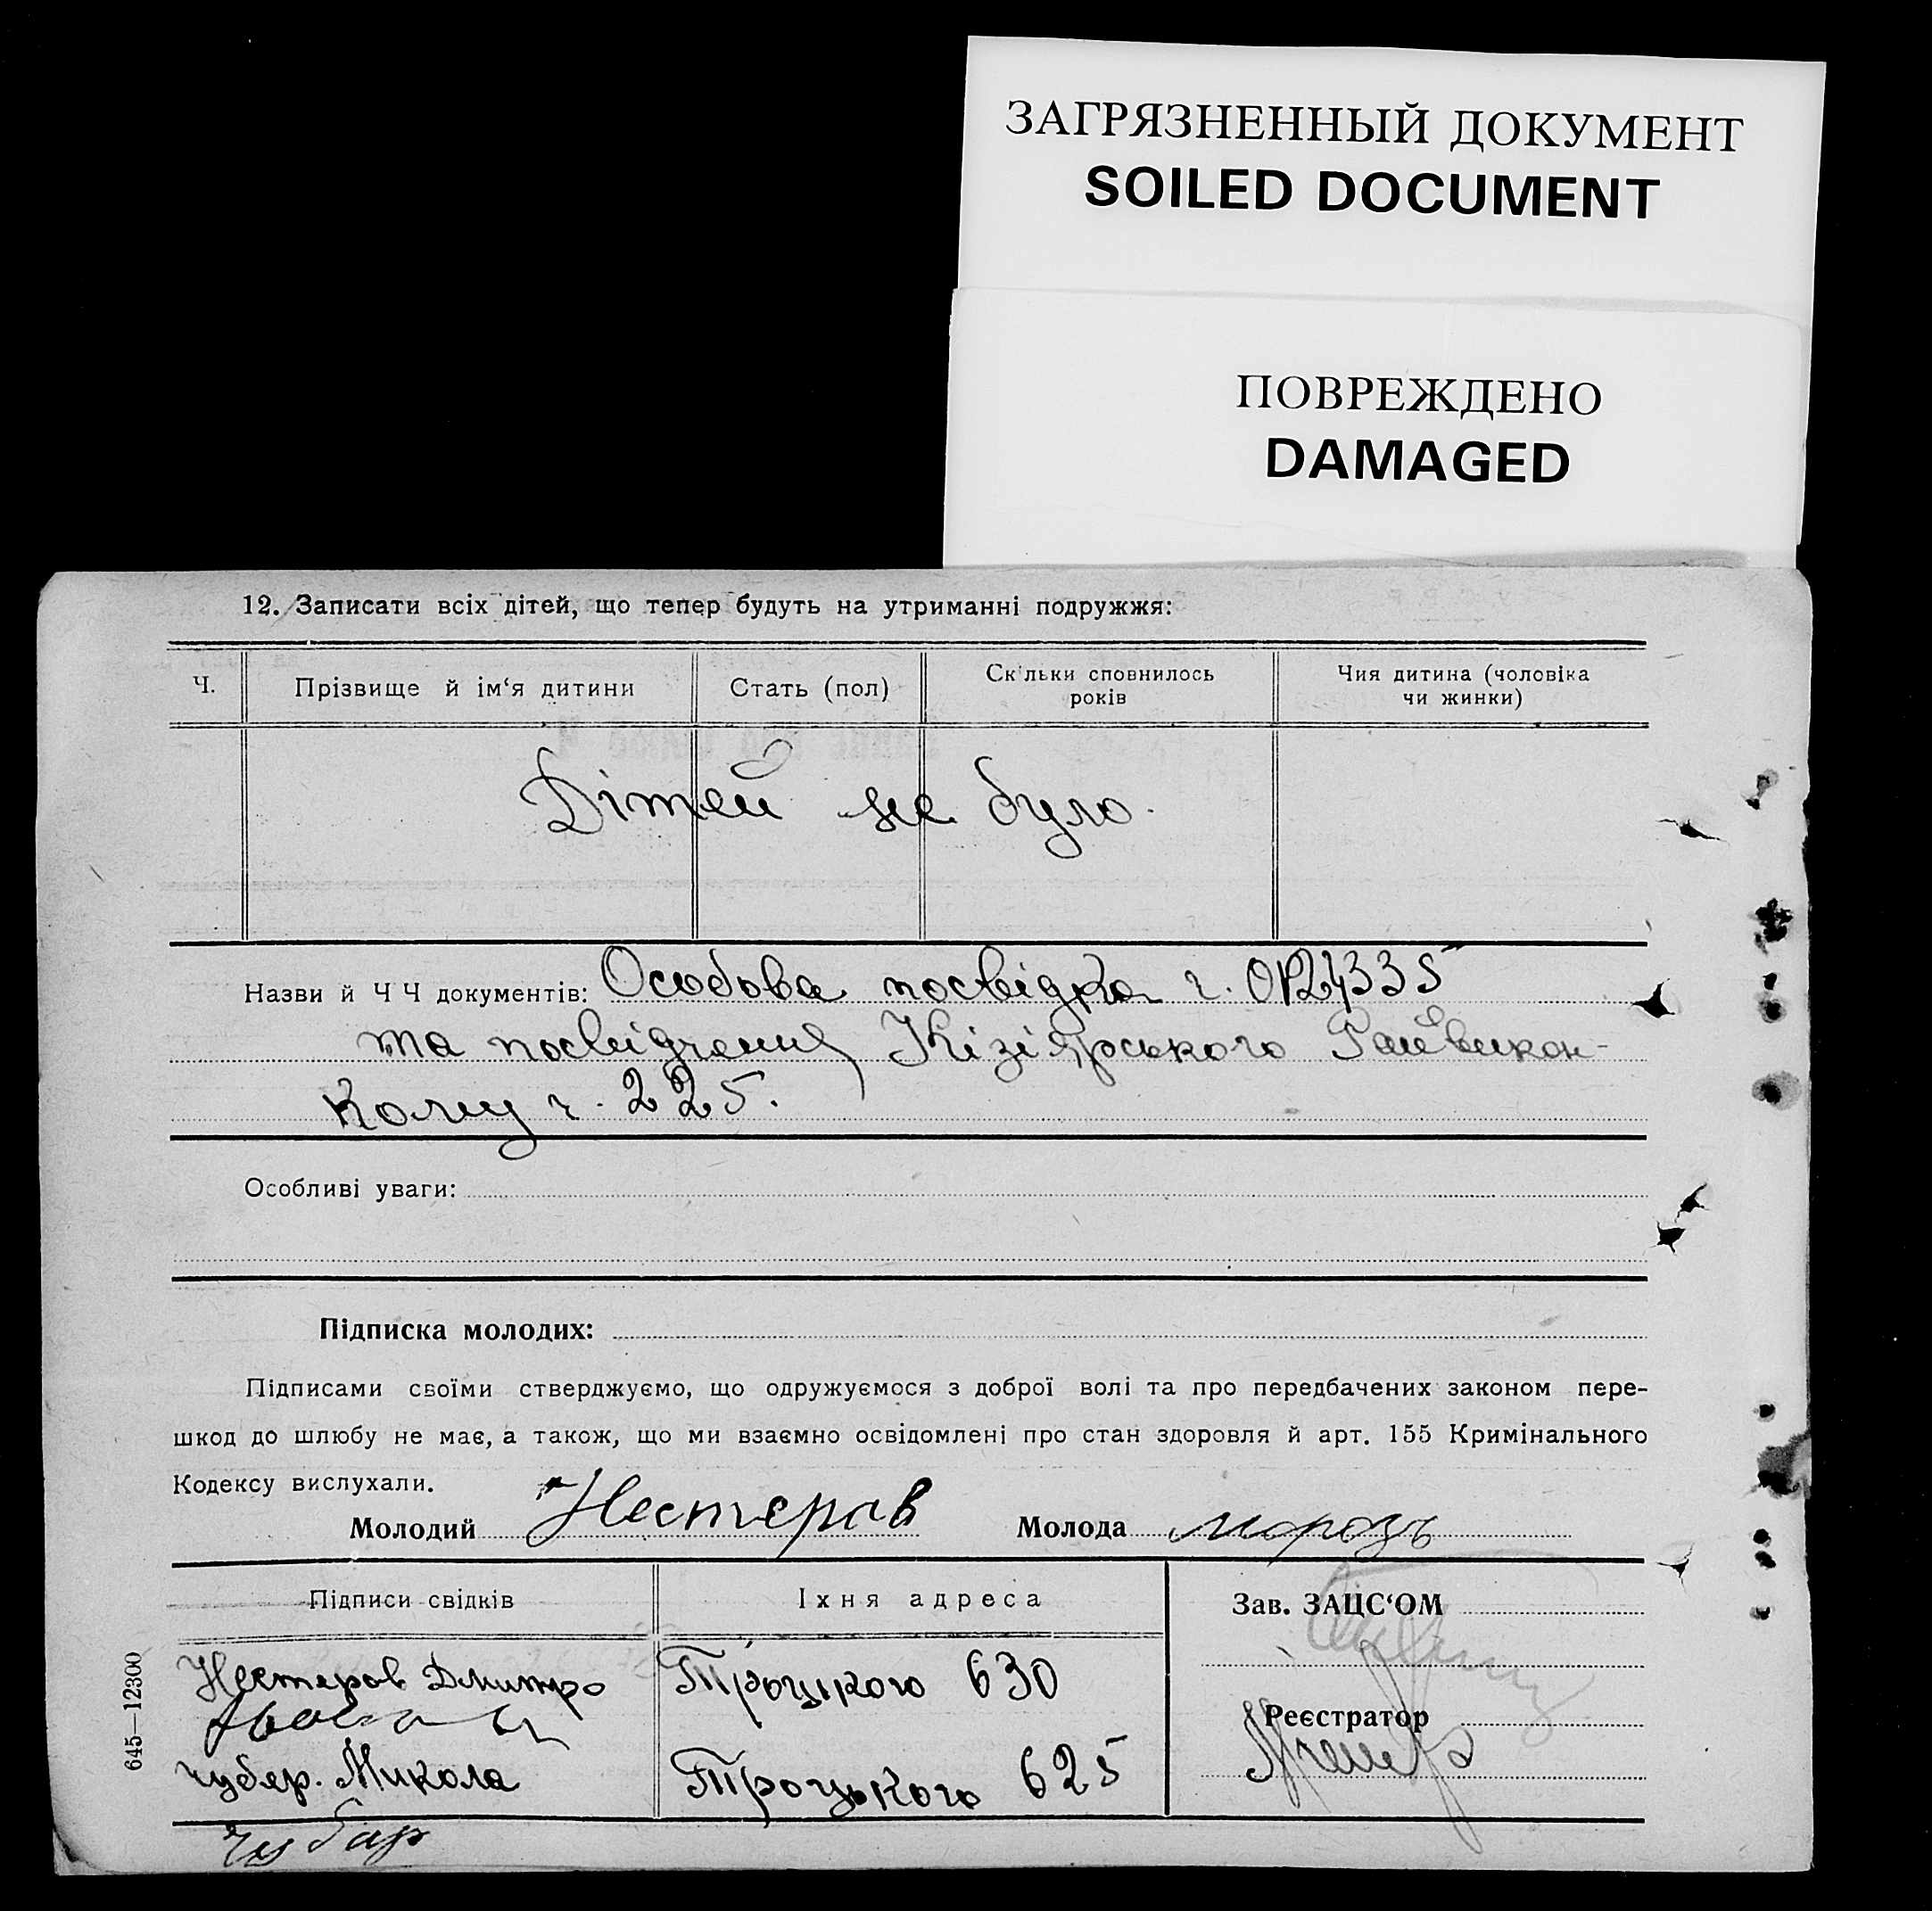 ЗАГРЯЗНЕННЫЙ ДОКУМЕНТ
SOILED DOCUMENT
ПОВРЕЖДЕНО
DAMAGED
12. Записати всіх дітей, що тепер будуть на утриманні подружжя:
Ч. Прізвище й ім‘я дитини Стать (пол) Скільки сповнилось років Чия дитина (чоловіка чи жинки)
Дітей не було.
Назви й Ч Ч документів: Особова посвідка ч.
та посвідчення Кізіярського Райвикон-
кому ч. 225.
Особливі уваги:
Підписка молодих:
Підписами своїми стверджуємо, що одружуємося з доброї волі та про передбачених законом пере-
шкод до шлюбу не має, а також, що ми взаємно освідомлені про стан здоровля й арт. 155 Кримінального
Кодексу вислухали.
Молодий Нестеров Молода Морозъ
Підписи свідків Їхня адреса Зав. ЗАЦС‘ОМ
Нестеров Дмитро Троцкого 630
Реєстратор
Чубар. Микола Троцького 625
Чубар
645—12300